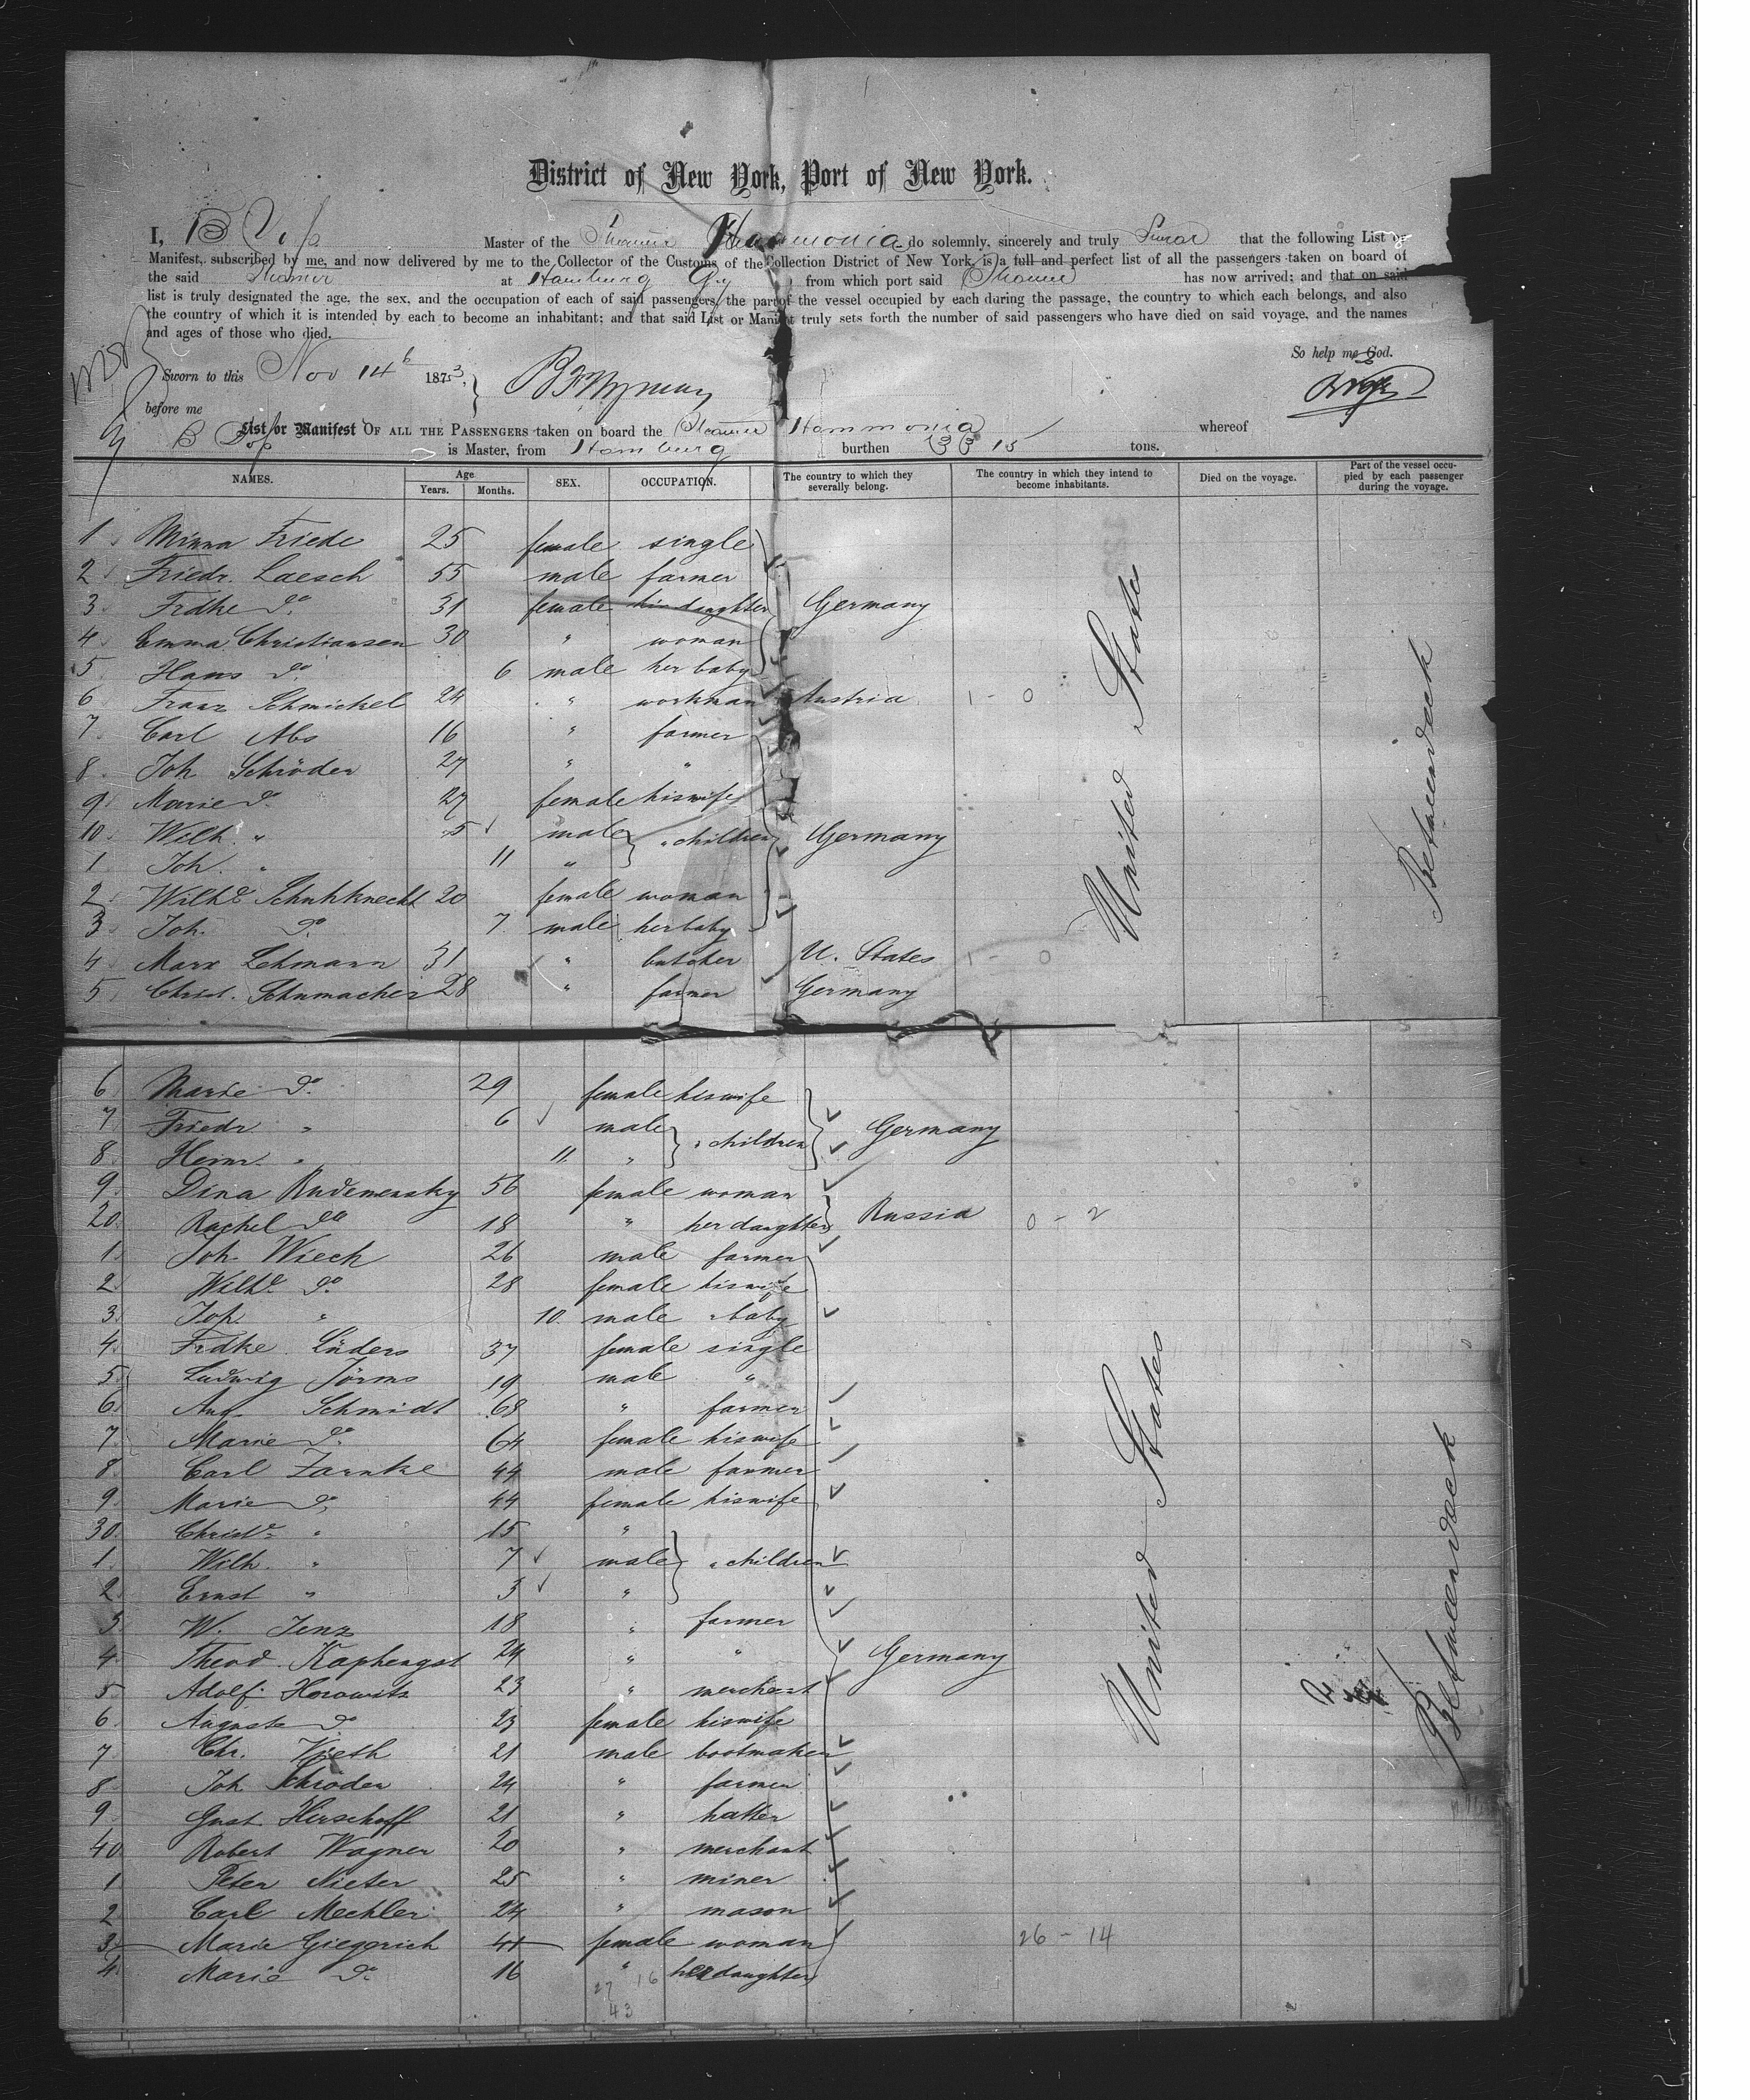 District of New York, Port of New York.
I, B Voss Master of the Steamer Hammonia do solemnly, sincerely and truly Swear that the following List or
Manifest, subscribed by me, and now delivered by me to the Collector of the Customs of the Collection District of New York, is a full and perfect list of all the passengers taken on board of
the said Steamer at Hamburg from which port said Steamer has now arrived; and that on said
list is truly designated the age, the sex, and the occupation of each of said passengers, the part of the vessel occupied by each during the passage, the country to which each belongs, and also
the country of which it is intended by each to become an inhabitant; and that said List or Manifest truly sets forth the number of said passengers who have died on said voyage, and the names
and ages of those who died.
So help me God.
Sworn to this Nov 14th 1873
before me
List or Manifest OF ALL THE PASSENGERS taken on board the Steamer Hammonia whereof
B Voss is Master, from Hamburg burthen tons.
NAMES. Age Years. Months. SEX. OCCUPATION. The country to which they severally belong. The country in which they intend to become inhabitants. Died on the voyage. Part of the vessel occupied by each passenger during the voyage.
1 Minna Friede 25 female single
2 Friedr. Laesch 55 male farmer
3 Frdke do. 31 female his daughter Germany
4 Emma Christiansen 30 " woman
5 Hans do. 6 male her baby
6 Franz Schmickel 24 " workman Austria 1 - 0
7 Carl Abs 16 " farmer
8 Joh Schröder 27 " "
9 Marie do. 27 female his wife
10 Wilh. " 5 male " children Germany
1 Joh. " 11 "
2 Wilhe Schuhknecht 20 female woman
3 Joh. do. 7 male her baby
4 Marx Lehmann 31 " butcher U. States 1 - 0
5 Christ. Schumacher 28 " farmer Germany
United States
Betweendeck
6 Marie do. 29 female his wife
7 Friedr " 6 male " children Germany
8 Heinr. " 11 "
9 Dina Rudemensky 56 female woman
20 Rachel do 18 " her daughter Russia 0 - 2
1 Joh. Wiech 26 male farmer
2 Wilhe do. 28 female his wife
3 Joh. " 10 male " baby
4 Frdke Lüders 37 female single
5 Ludwig Jörms 19 male "
6 Aug. Schmidt 68 " farmer
7 Marie do. 64 female his wife
8 Carl Zarnke 44 male farmer
9 Marie do. 44 female his wife
30 Christe " 15 "
1 Wilh. " 7 male " children
2 Ernst " 3 "
3 W. Jenz 18 " farmer
4 Theod. Kaphengst 24 " " Germany
5 Adolf Horowitz 23 " merchant
6 Auguste do 23 female his wife
7 Chr. Vieth 21 male bootmaker
8 Joh Schröder 24 " farmer
9 Gust. Hirschoff 21 " hatter
40 Robert Wagner 20 " merchant
1 Peter Nieter 25 " miner
2 Carl Mechler 24 " mason
3 Marie Giegerich 41 female woman 26 - 14
4 Marie do. 16 " her daughter
27 16
43
United States
Betweendeck